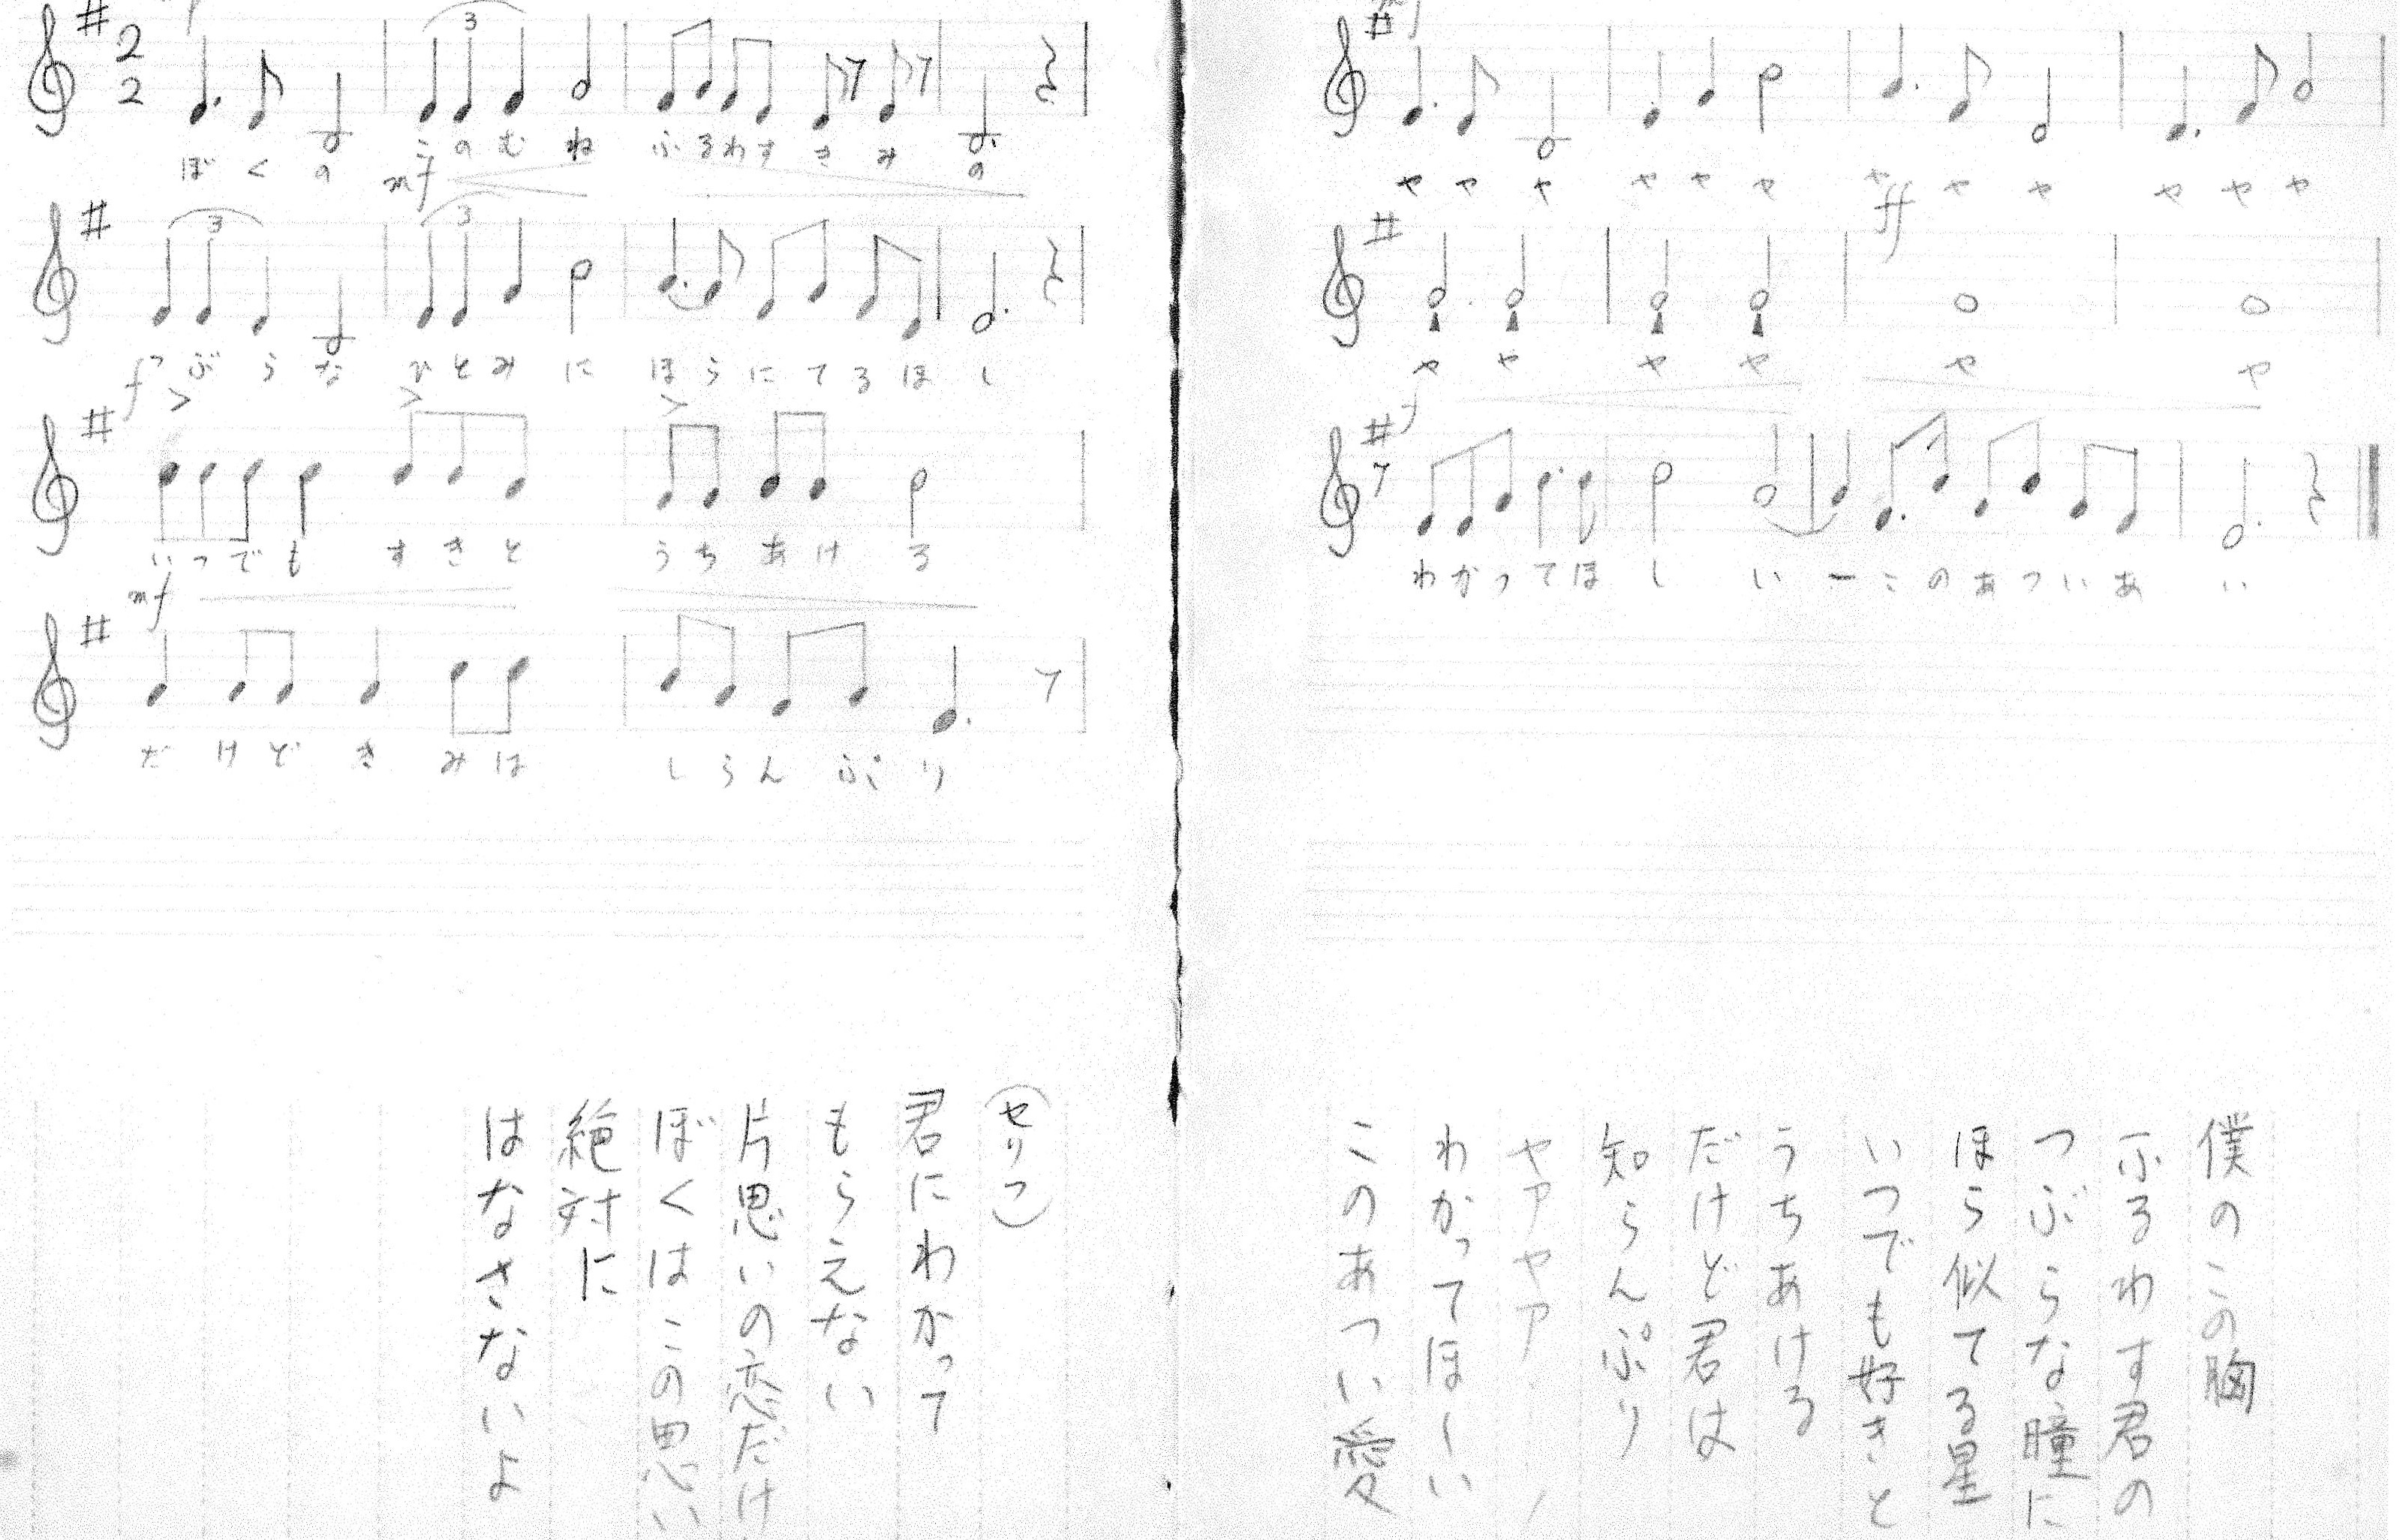 2
2
3
ぼくの このむね ふるわす きみの
mf
3
3
つぶらな ひとみに ほらにてるほし
f
いつでも すきと うちあける
mf
だけど きみは しらんぷり
ヤ ヤ ヤ ヤ ヤ ヤ ヤ ヤ ヤ ヤ ヤ ヤ
ff
ヤ ヤ ヤ ヤ ヤ ヤ
f
わかってほしいーこのあついあい
僕のこの胸
ふるわす君の
つぶらな瞳に
ほら似てる星
いつでも好きと
うちあける
だけど君は
知らんぷり
ヤアヤア
わかってほしい
このあつい愛
(せりフ)
君にわかって
もらえない
片思いの恋だけ
ぼくはこの思い
絶対に
はなさないよ